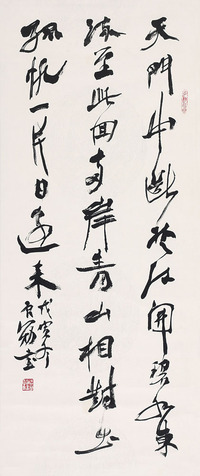 天門中斷楚江開碧水東
流至此回兩岸青山相對出
孤帆一片日邊來戊寅